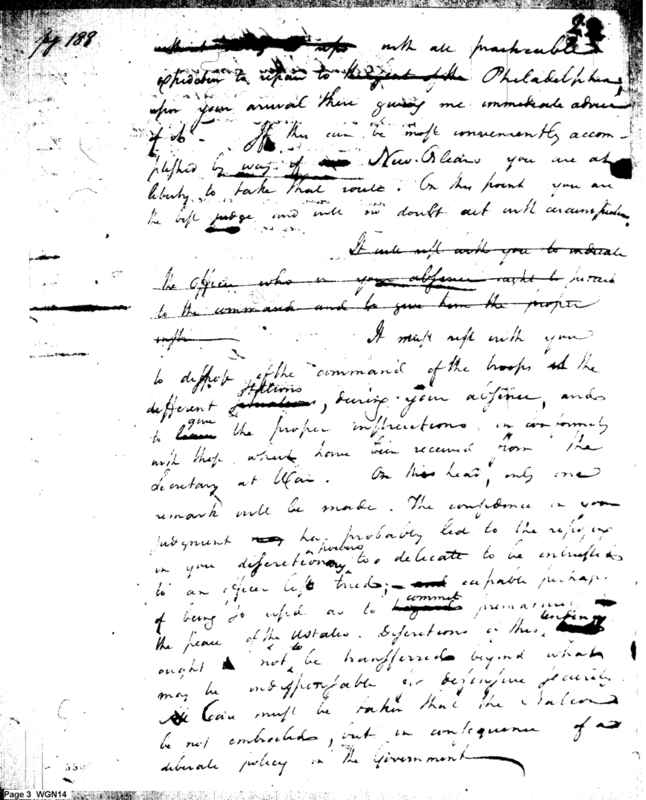 pg 188
with all practicable
expedition to repair to the Philadelphia,
upon your arrival there giving me immediate advice
of it. If this can be most conveniently accom-
plished by way of New-Orleans you are at
liberty to take that route. On this point you are
the best judge and will no doubt act with circumspection.
It will rest with you to indicate
the officer who in your absence ought to succeed
to the command and to give him the proper
instr
It must rest with you
to dispose of the command of the troops at the
stations
different situations, during your absence, and
give
to leave the proper instructions in conformity
with those which have been received from the
Secretary at War. On this head, only one
remark will be made. The confidence in your
judgment has probably led to the reposing
in you discretionary powers too delicate to be intrusted
to an officer less tried; capable perhaps
commit
of being so used as to hazard prematurely
the peace of the UStates. Discretions of this tendency
ought not to be transferred beyond what
may be indispensable for defensive security.
Care must be taken that the Nation
be not embroiled, but in consequence of a
deliberate policy in the Government
Page 3 WGN14